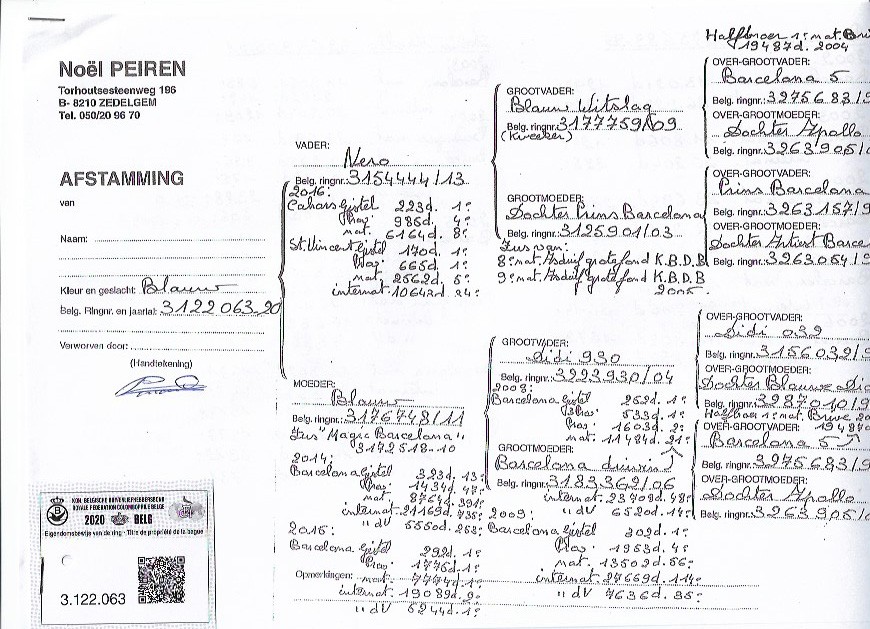 Noël PEIREN
Torhoutsesteenweg 196
B- 8210 ZEDELGEM
Tel. 050/20 96 70
AFSTAMMING
van
Naam:
Kleur en geslacht: Blauw
Belg. Ringnr. en jaartal: 3122 063.20
Verworven door:
(Handtekening)
KON. BELGISCHE DUIVENLIEFHEBBERSBOND
ROYALE FEDERATION COLOMBOPHILE BELGE
2020 BELG
Eigendomsbewijs van de ring - Titre de propriété de la bague
3.122.063
VADER:
Nero
Belg. ringnr.: 3154444/13
2016:
Cahors Gistel 223d. 1e
Prov. 986d. 4e
nat. 6164d. 8e
St. Vincent Gistel 170d. 1e
Prov. 665d. 1e
nat. 2562d. 5e
internat. 10642d. 24e
MOEDER:
Blauw
Belg. ringnr.: 3176748/11
Zus "Magic Barcelona"
3172518-10
2014:
Barcelona Gistel 323d. 13e
Prov. 1434d. 47e
nat. 8764d. 391e
internat. 21169d. 735e
"dV 5550d. 253e
2015:
Barcelona Gistel 292d. 1e
Prov. 1776d. 1e
Opmerkingen: nat. 7744d. 1e
internat. 19089d. 9e
"dV 5244d. 1e
GROOTVADER:
Blauw Witslag
Belg. ringnr.: 3177759/09
(Kweker)
GROOTMOEDER:
Dochter Prins Barcelona
Belg. ringnr.: 3125901/03
Zus van:
8e nat. Asduif grote fond K.B.D.B
9e nat. Asduif grote fond K.B.D.B
2005.
GROOTVADER:
Didi 930
Belg. ringnr.: 3223930/04
2008:
Barcelona Gistel 252d. 1e
533d. 1e
Prov. 1603d. 2e
nat. 11484d. 21e
GROOTMOEDER:
Barcelona duivin
Belg. ringnr.: 3183362/06
internat. 23709d. 48e
2009: "dV 6520d. 14e
Barcelona Gistel 302d. 1e
Prov. 1953d. 4e
nat. 13502d. 56e
internat. 27669d. 114e
"dV 7636d. 35e
Halfbroer 1e nat. Bri
19487d. 2004
OVER-GROOTVADER:
Barcelona 5
Belg. ringnr.: 3275683/9
OVER-GROOTMOEDER:
Dochter Apollo
Belg. ringnr.: 3263905/0
OVER-GROOTVADER:
Prins Barcelona
Belg. ringnr.: 3263157/9
OVER-GROOTMOEDER:
Dochter Artiest Barce
Belg. ringnr.: 3263054/9
OVER-GROOTVADER:
Didi 032
Belg. ringnr.: 3156032/9
OVER-GROOTMOEDER:
Dochter Blauwe Di
Belg. ringnr.: 3287010/9
Halfbroer 1e nat. Brive 20
19487d
OVER-GROOTVADER:
Barcelona 5
Belg. ringnr.: 3275683/9
OVER-GROOTMOEDER:
Dochter Apollo
Belg. ringnr.: 3263905/0